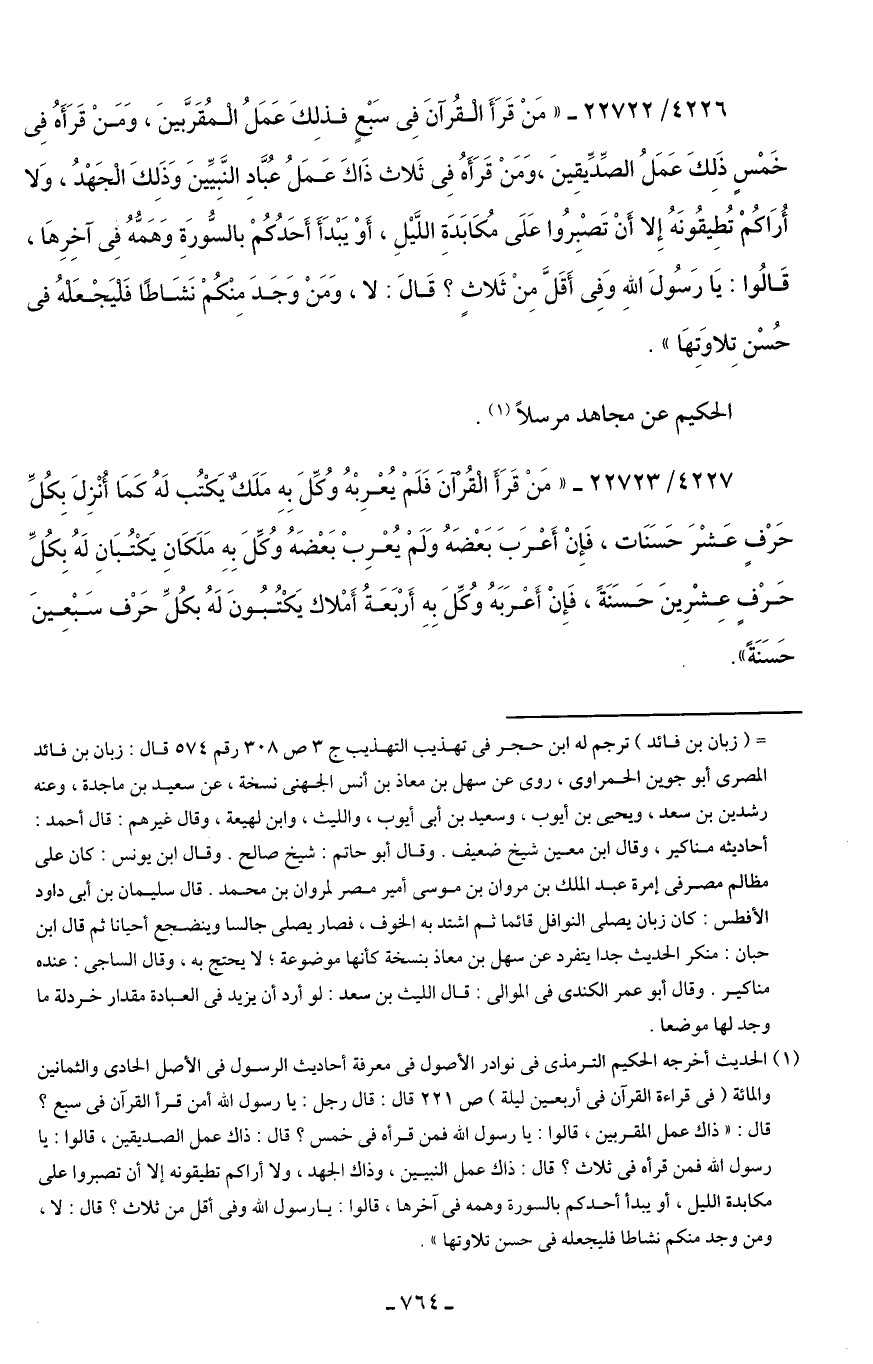 ٤٢٢٦/ ٢٢٧٢٢ ـ « مَنْ قَرَأَ الْـقُرآنَ فِى سَبْعٍ فَـذلِكَ عَمَلُ الْـمُقَرَّبينَ ، ومَـنْ قَرَأَهُ فِى
خَمْسٍ ذَلِكَ عَمَلُ الصِّدِّيقِينَ ،وَمَنْ قَرَأَهُ فِى ثَلاث ذَاكَ عَـمَلُ عُبَّادِ النَّبِيِّينَ وَذَلِكَ الْجَهْدُ ، وَلا
أُرَاكُمْ تُطِيقُونَهُ إِلا أَنْ تَصْبِرُوا عَلَى مُكَابَدَةِ اللَّيْلِ ، أَوْ يَبْدَأَ أَحَدُكُمْ بالسُّورَةِ وَهَمُّهُ فِى آخِرِهَا ،
قَـالُوا : يَا رَسُولَ اللهِ وَفِى أَقَلَّ مِنْ ثَلاثٍ ؟ قَـالَ : لا ، وَمَنْ وَجَـدَ مِنْكُمْ نَشَاطًا فَلْيَجْـعَلْهُ فى
حُسْنِ تِلاوَتِهَا » .
الحكيم عن مجاهد مرسلاً (١) .
٤٢٢٧/ ٢٢٧٢٣ ـ « مَنْ قَرَأَ الْقُرْآنَ فَلَمْ يُعْـرِبْهُ وُكِّلَ بِهِ مَلَكٌ يَكْتُب لَهُ كَمَا أُنْزِلَ بِكُلِّ
حَرْفٍ عَـشْرَ حَسَنَات ، فَإِنْ أَعْـرَبَ بَعْضَهُ وَلَمْ يُعْـرِبْ بَعْضَهُ وُكِّلَ بِهِ مَلَكَانِ يَكْتُـبَانِ لَهُ بِكُلِّ
حَـرْفٍ عِـشْرِينَ حَـسَنَةً ، فَإِنْ أَعْـرَبَهُ وُكِّلَ بِهِ أَرْبَعَـةُ أَمْلاك يَكْتُـبُـونَ لَهُ بِكُلِّ حَرْف سَـبْعِـينَ
حَسَنَةً».
= ( زبان بن فـائد ) ترجم له ابن حـجـر فى تهـذيب التهـذيب ج ٣ ص ٣٠٨ رقم ٥٧٤ قـال : زبان بن فـائد
المصرى أبو جوين الحـمراوى ، روى عن سهل بن معاذ بن أنس الجهنى نسخة ، عن سعيد بن ماجدة ، وعنه
رشدين بن سعد ، ويحيى بن أيوب ، وسعيد بن أبى أيوب ، والليث ، وابن لهيعة ، وقال غيرهم : قال أحمد :
أحاديثه مـناكير ، وقال ابن معـين شيخ ضعيف . وقـال أبو حاتم : شيخ صالح . وقـال ابن يونس : كان على
مظالم مصـرفى إمرة عبـد الملك بن مروان بن مـوسى أمير مـصر لمروان بن محـمد . قال سليـمان بن أبى داود
الأفطس : كان زبان يصلى النوافل قائما ثـم اشتد به الخوف ، فصار يصلى جالسا وينضـجع أحيانا ثم قال ابن
حبان : منكر الحديث جدا يتفرد عن سهل بن معاذ بنسخة كأنها موضوعة ؛ لا يحتج به ، وقال الساجى : عنده
مناكـير . وقال أبو عمر الكندى فى الموالى : قـال الليث بن سعد : لو أرد أن يزيد فى العبادة مقدار خـردلة ما
وجد لها موضعا .
(١) الحديث أخرجه الحكيم التـرمذى فى نوادر الأصول فى معرفة أحاديث الرسول فى الأصل الحادى والثمانين
والمائة ( فى قراءة القرآن فى أربعـين ليلة ) ص ٢٢١ قال : قال رجل : يا رسول الله أمن قـرأ القرآن فى سبع ؟
قال : « ذاك عمل المقـربين ، قالوا : يا رسول الله فمن قـرأه فى خمس ؟ قال : ذاك عمل الصـديقين ، قالوا : يا
رسول الله فمن قرأه فى ثلاث ؟ قال : ذاك عمل النبيـين ، وذاك الجهد ، ولا أراكم تطيقونه إلا أن تصبروا على
مكابدة الليل ، أو يبدأ أحـدكم بالسورة وهمه فى آخرها ، قالوا : يـارسول الله وفى أقل من ثلاث ؟ قال : لا ،
ومن وجد منكم نشاطا فليجعله فى حسن تلاوتها » .
ـ ٧٦٤ ـ